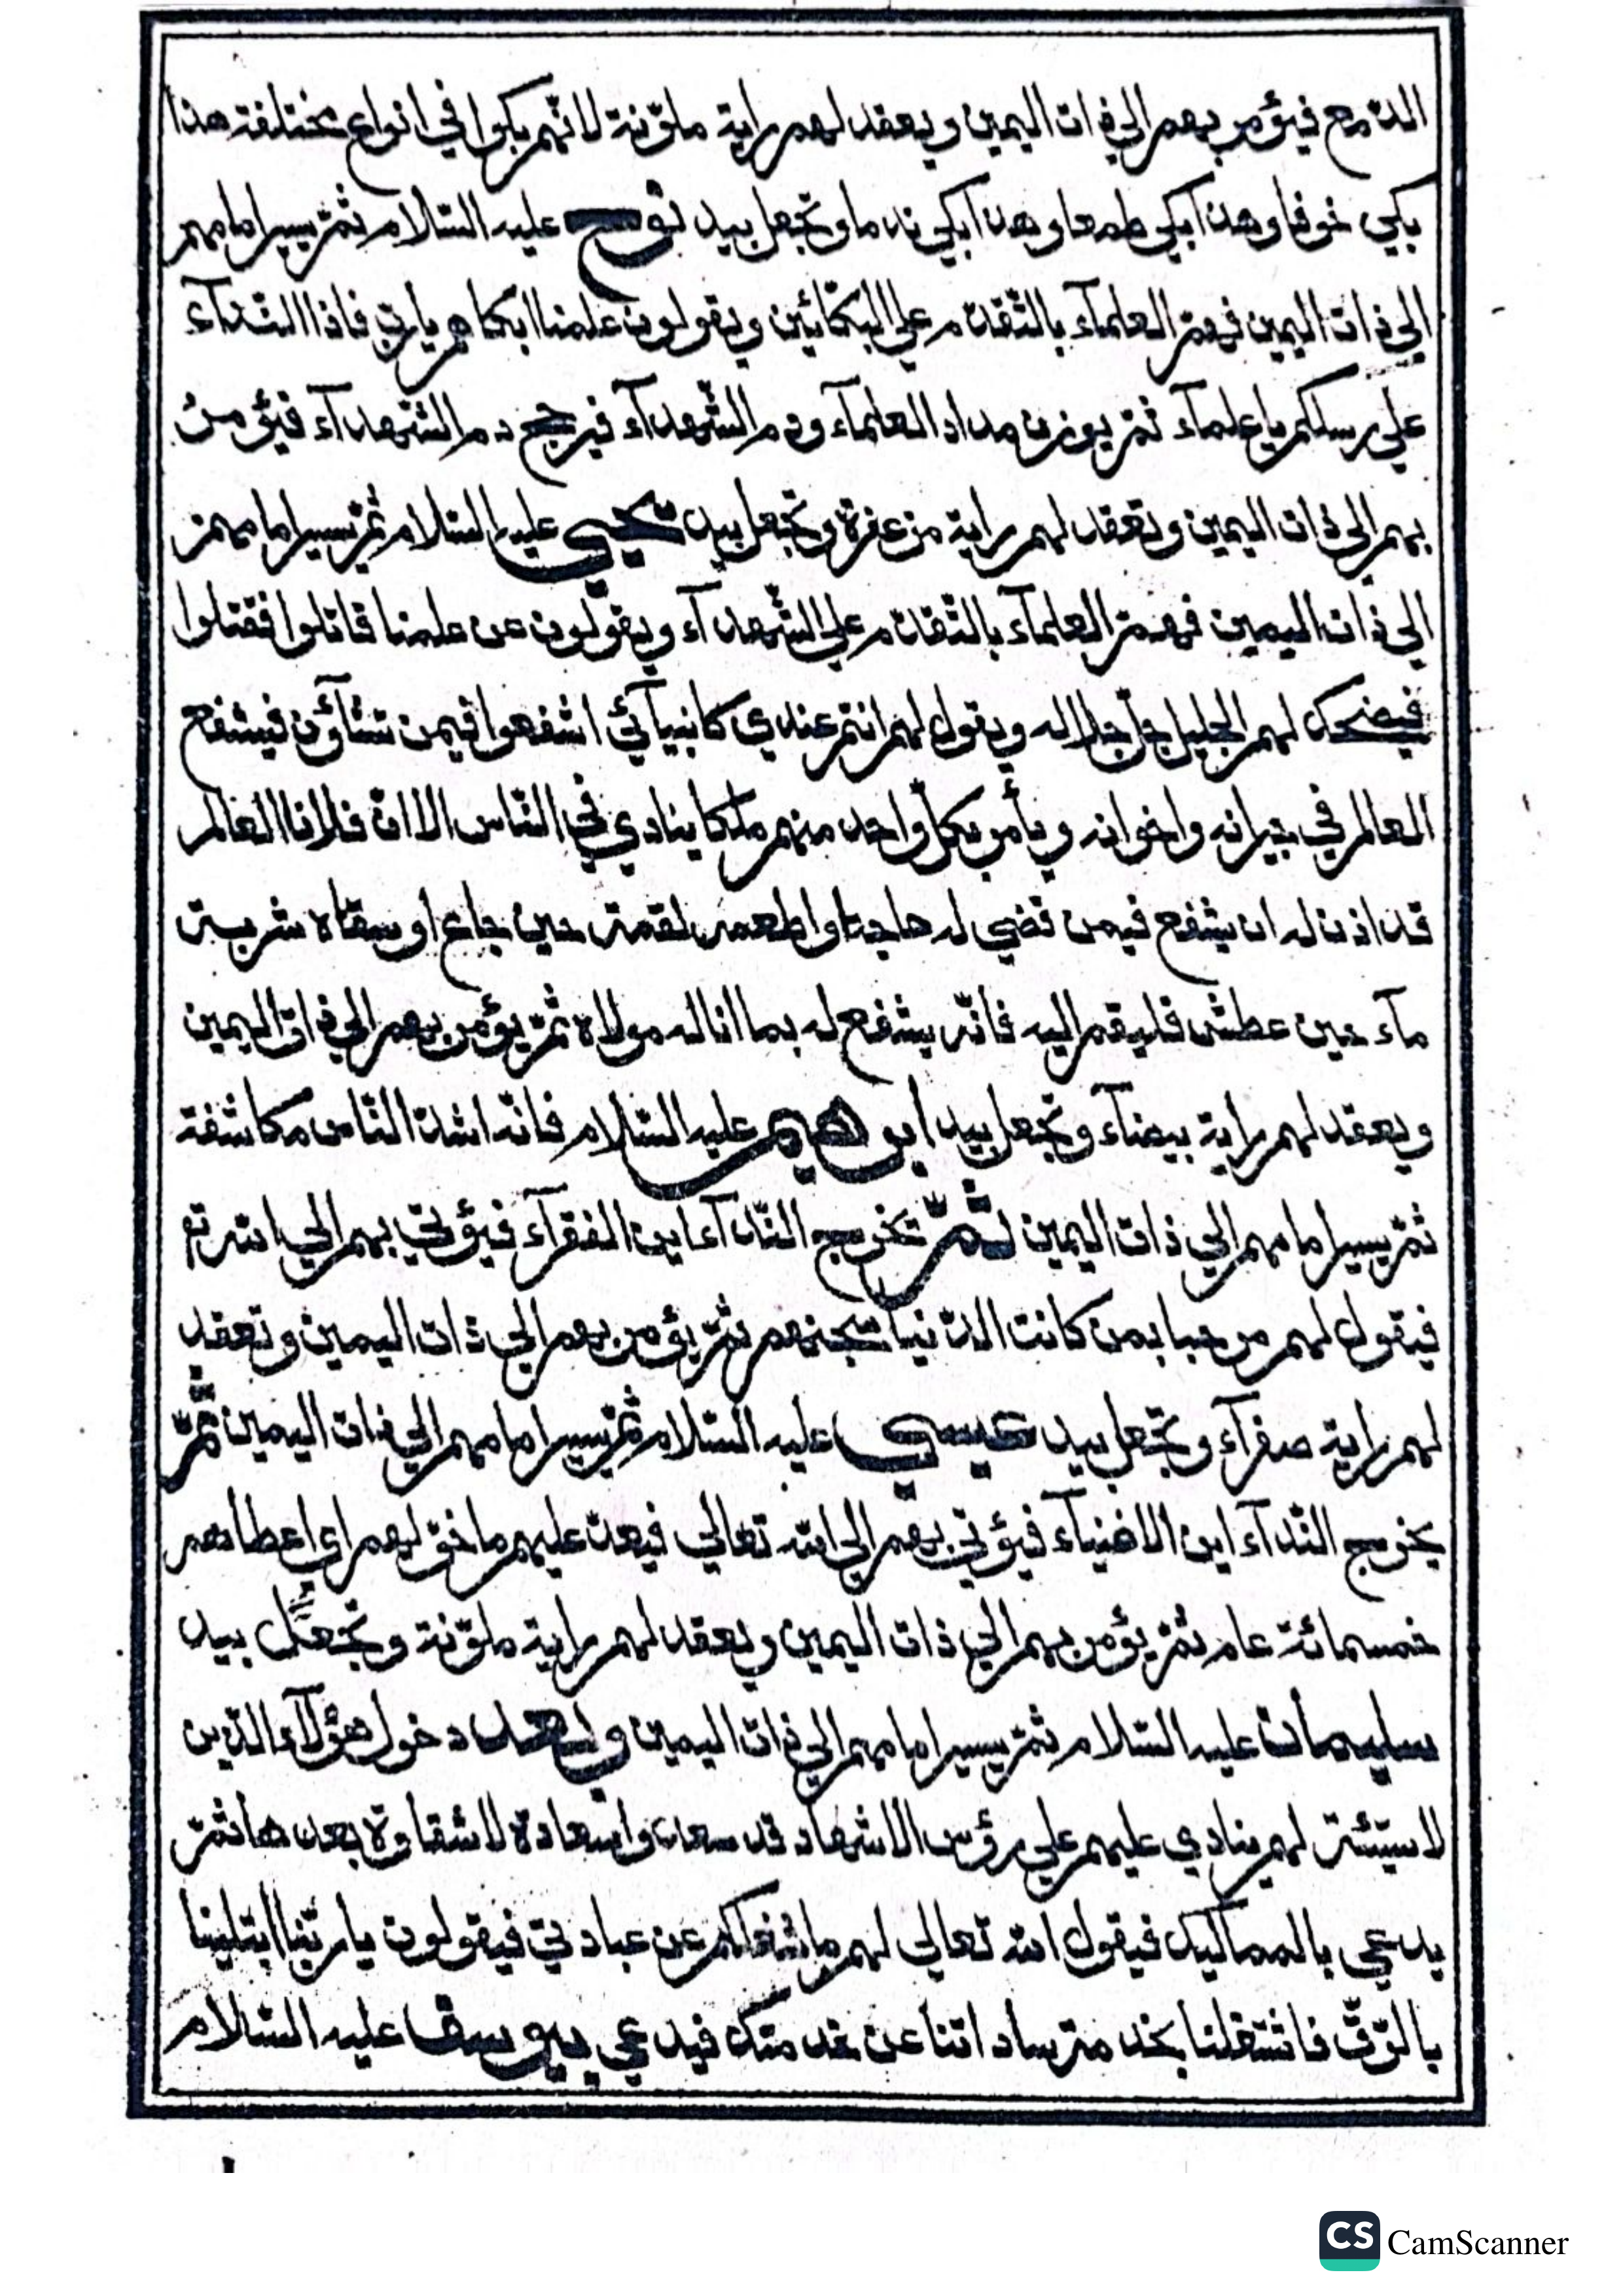 الدّمع فيؤمر بهم الي ذات اليمين ويعقد لهم راية ملوّنة لانّهم بكوا في انواع مختلفة هذا
بكي خوفا وهذا بكي طمعا وهذا بكي ندما وتجعل بيد نوح عليه السّلام ثمّ يسير امامهم
الي ذات اليمين فهمّ العلمآء بالتّقدّم علي البكّائين ويقولون علمنا ابكاهم يا ربّ فاذا النّدآء
علي رسلكم يا علمآء ثمّ يوزن مداد العلمآء ودم الشّهدآء فيرجح دم الشّهدآء فيؤمر
بهم الي ذات اليمين وتعقد لهم راية مزعفرة وتجعل بيد يحيي عليه السّلام ثمّ يسير امامهم
الي ذات اليمين فهمّ العلمآء بالتّقدّم علي الشّهدآء ويقولون عن علمنا قاتلوا فقتلوا
فيضحك لهم الجليل جلّ جلاله ويقول لهم انتم عندي كانبيآئي اشفعوا فيمن تشآؤن فيشفع
العالم في جيرانه واخوانه ويأمر بكلّ واحد منهم ملكا ينادي في النّاس الا انّ فلانا العالم
قد اذن له ان يشفع فيمن قضي له حاجة او اطعمه لقمة حين جاع او سقاه شربة
مآء حين عطش فليقم اليه فانّه يشفع له بما اناله مولاه ثمّ يؤمر بهم الي ذات اليمين
ويعقد لهم راية بيضآء وتجعل بيد ابرهيم عليه السّلام فانّه اشدّ النّاس مكاشفة
ثمّ يسير امامهم الي ذات اليمين ثمّ تخرج النّدآء اين الفقرآء فيؤتي بهم الي الله تع
فيقول لهم مرحبا بمن كانت الدّنيا سجنهم ثمّ يؤمر بهم الي ذات اليمين وتعقد
لهم راية صفرآء وتجعل بيد عيسي عليه السّلام ثمّ يسير امامهم الي ذات اليمين ثمّ
يخرج النّدآء اين الاغنيآء فيؤتي بهم الي الله تعالي فيعدّ عليهم ما خوّلهم اي اعطاهم
خمسمائة عام ثمّ يؤمر بهم الي ذات اليمين ويعقد لهم راية ملوّنة وتجعل بيد
سليمان عليه السّلام ثمّ يسير امامهم الي ذات اليمين وبعد دخول هؤلآء الّذين
لا سيّئة لهم ينادي عليهم علي رؤس الاشهاد قد سعدوا سعادة لا شقاوة بعدها ثمّ
يدعي بالمماليك فيقول الله تعالي لهم ما شغلكم عن عبادتي فيقولون يا ربّنا ابتلينا
بالرّقّ فاشتغلنا بخدمة ساداتنا عن خدمتك فيدعي بيوسف عليه السّلام
CS CamScanner